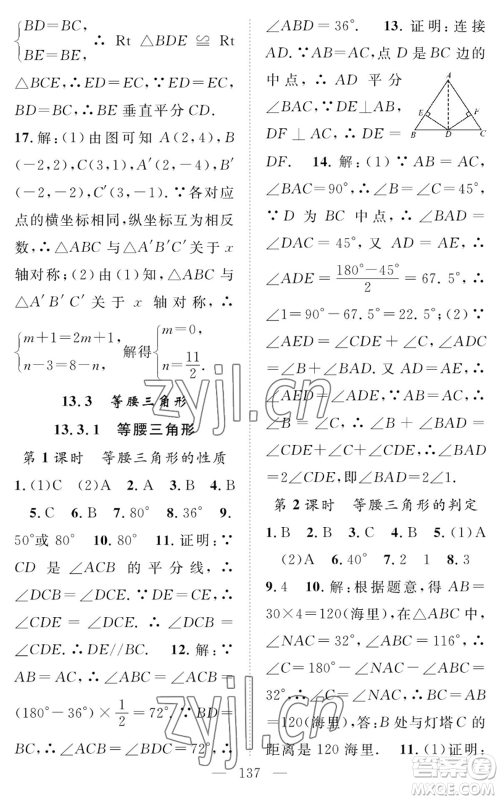 BD=BC,
BE=BE, ∴ Rt △BDE ≌ Rt
△BCE,∴ED=EC,∵ED=EC,
BD=BC,∴BE 垂直平分 CD.
17.解:(1)由图可知 A(2,4),B
(-2,2),C(3,1),A′(2,-4),B′
(-2,-2),C′(3,-1).∵各对应
点的横坐标相同,纵坐标互为相反
数,∴△ABC 与△A′B′C′关于 x
轴对称;(2)由(1)可知,△ABC
与△A′B′C′关于 x 轴对称,∴
m+1=2m+4,
n-3=8-n, 解得
m=-3,
n=11/2.
13.3 等腰三角形
13.3.1 等腰三角形
第 1 课时 等腰三角形的性质
1.(1)C (2)A 2.A 3.B 4.B
5.C 6.B 7.80° 8.36° 9.
50°或 80° 10.80° 11.证明:∵
CD 是∠ACB 的平分线,∴
∠DCB=∠DCE.∵∠DCE=
∠CDE.∴DE//BC. 12.解:∵
AB=AC,∴∠ABC=∠ACB=
(180°-36°)×1/2=72°.∵BD=
BC,∴∠ACB=∠BDC=72°,∴
∠ABD=36°. 13.证明:连接
AD.∵AB=AC,点 D 是 BC 边的
中点,∴AD 平分
∠BAC,∵DE⊥AB,
DF⊥AC,∴DE=
DF. 14.解:(1)∵AB=AC,
∠BAC=90°,∴∠B=∠C=45°,
∵D 为 BC 中点,∴∠BAD=
∠DAC=45°,又 AD=AE,∴
∠ADE=(180°-45°)/2=67.5°,∴
∠1=90°-67.5°=22.5°;(2)∵
∠AED=∠CDE+∠C,∴∠ADC
=∠AED+∠CDE=2∠CDE+
∠C=∠B+∠BAD,又∵AB=
AC,∴∠B=∠C,∴∠BAD=
∠CDE+∠CDE+∠C-∠B=
2∠CDE,即∠BAD=2∠1.
第 2 课时 等腰三角形的判定
1.B 2.B 3.B 4.C 5.(1)A
(2)A 6.40° 7.2 1 8.3
9.4 10.解:根据题意,得 AB=
30×4=120(海里),在△ABC 中,
∠NAC=32°,∠ABC=116°,∴
∠C=180°-∠NAC-∠ABC=
32°∴∠C=∠NAC,∴BC=AB
=120(海里),答:B 处与灯塔 C 的
距离是 120 海里. 11.(1)证明:
A
E
F
B
D
C
137
zyjl.cn
zyjl.cn
答案圈
MXQE.COM